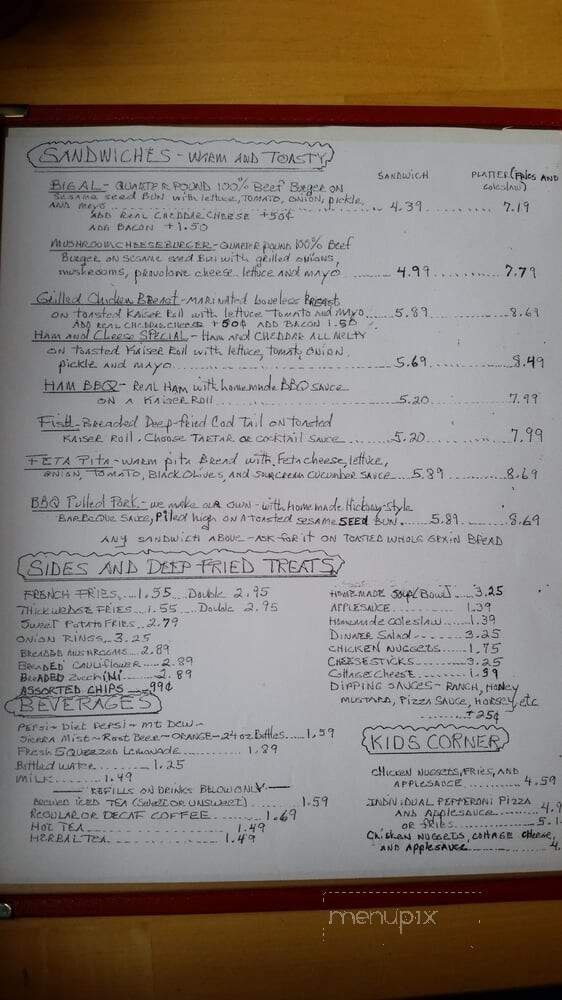 SANDWICHES - WARM AND TOASTY
SANDWICH PLATTER (FRIES AND coleslaw)
BIG AL - QUARTER POUND 100% Beef Burger ON
sesame seed BUN with lettuce, TOMATO, ONION, pickle,
AND mayo 4.39 7.19
ADD REAL CHEDDAR CHEESE +50¢
ADD BACON +1.50
MUSHROOM CHEESEBURGER - QUARTER POUND 100% Beef
Burger ON sesame seed Bun with grilled onions,
mushrooms, provolone cheese, lettuce AND mayo 4.99 7.79
Grilled Chicken Breast - MARINATED boneless BREAST
ON toasted Kaiser Roll with lettuce Tomato and Mayo 5.89 8.69
ADD REAL CHEDDAR CHEESE +50¢ ADD BACON 1.50
HAM AND CHEESE SPECIAL - HAM and CHEDDAR ALL MELTY
ON toasted Kaiser Roll with lettuce, tomato, ONION,
pickle and mayo 5.69 8.49
HAM BBQ - REAL HAM with homemade BBQ SAUCE
ON A KAISER Roll 5.20 7.99
Fish - Breaded Deep-fried Cod Tail ON toasted
KAISER ROLL. Choose TARTAR OR cocktail Sauce 5.20 7.99
FETA PITA - WARM pita BREAD with Feta cheese, lettuce,
ONION, TOMATO, BLACK OLIVES, AND SOURCREAM CUCUMBER SAUCE 5.89 8.69
BBQ Pulled Pork - we make our OWN - with homemade Hickory-style
BARBEQUE SAUCE, Piled high ON A toasted sesame SEED BUN. 5.89 8.69
ANY SANDWICH ABOVE - ASK for it ON TOASTED WHOLE GRAIN BREAD
SIDES AND DEEP FRIED TREATS
FRENCH FRIES 1.55 Double 2.95
THICK WEDGE FRIES 1.55 Double 2.95
Sweet Potato FRIES 2.79
ONION RINGS 3.25
BREADED MUSHROOMS 2.89
BREADED CAULIFLOWER 2.89
BREADED ZUCCHINI 2.89
ASSORTED CHIPS 99¢
HOMEMADE SOUP (Bowl) 3.25
APPLESAUCE 1.39
Homemade coleslaw 1.39
DINNER SALAD 3.25
CHICKEN NUGGETS 1.75
CHEESESTICKS 3.25
Cottage Cheese 1.39
DIPPING SAUCES - RANCH, HONEY
MUSTARD, PIZZA SAUCE, HORSEY, etc
+25¢
BEVERAGES
PEPSI - Diet PEPSI - MT DEW -
SIERRA MIST - Root BEER - ORANGE - 24 oz Bottles 1.59
Fresh SQUEEZED LEMONADE 1.89
Bottled water 1.25
MILK 1.49
REFILLS ON DRINKS BELOW ONLY
BREWED ICED TEA (SWEET OR UNSWEET) 1.59
REGULAR OR DECAF COFFEE 1.69
HOT TEA 1.49
HERBAL TEA 1.49
KIDS CORNER
CHICKEN NUGGETS, FRIES, AND
APPLESAUCE 4.59
INDIVIDUAL PEPPERONI PIZZA
AND APPLESAUCE 4.9
OR FRIES 5.1
CHICKEN NUGGETS, COTTAGE CHEESE,
AND APPLESAUCE 4.
menupix